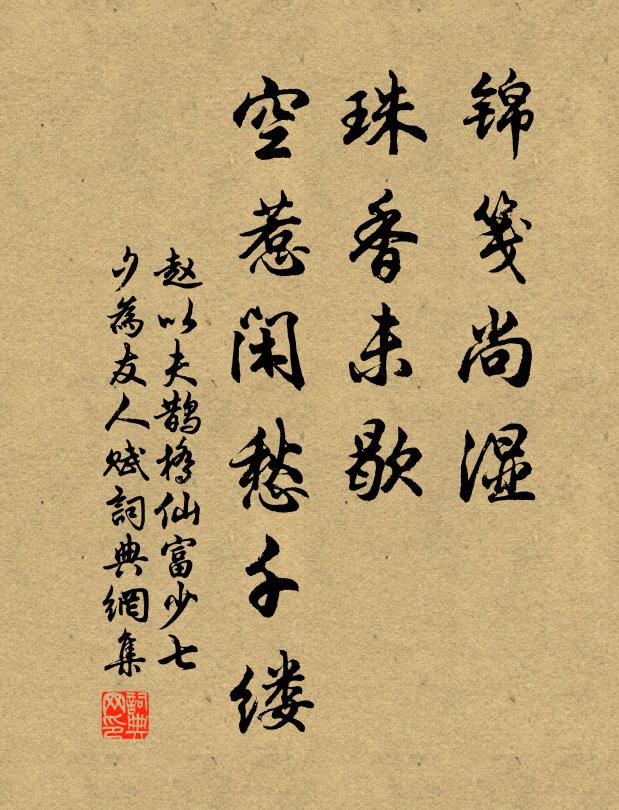 锦笺尚湿
珠香未歇
空惹闲愁千缕
赵以夫鹊桥仙富少七
夕为友人赋词典网集
词典网印